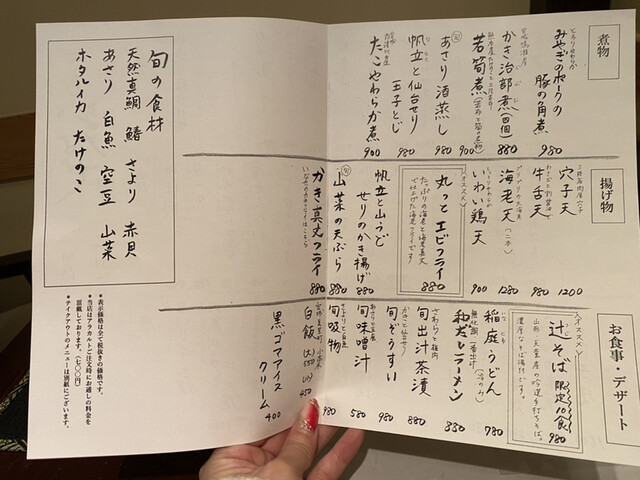 煮物
とろりやわらか
みやぎのポークの
豚の角煮
980
かき治部煮(四個)
880
若筍煮(若布と筍の煮物)
900
旬
あさり酒蒸し
980
帆立と仙台せり
玉子とじ
980
たこやわらか煮
900
揚げ物
穴子天
1200
牛舌天
980
海老天(二本)
1280
いわい鶏天
900
オススメ
丸っとエビフライ
たっぷりの海老と海老真丈
で仕上げた海老フライです
880
帆立と山うど
せりのかき揚げ
880
旬
山菜の天ぷら
880
かき真丈フライ
880
お食事・デザート
オススメ
辻そば 限定10食
980
稲庭うどん
780
和だしラーメン
880
旬出汁茶漬
880
旬ぞうすい
980
旬味噌汁
580
旬吸物
980
白飯(大)550(小)450
黒ゴマアイス
クリーム
400
旬の食材
天然真鯛 鰆 さより 赤貝
あさり 白魚 空豆 山菜
ホタルイカ たけのこ
*表示価格は全て税抜きの価格です。
*当店はアラカルトご注文時にお通しの料金を
頂戴しております。(七〇〇円)
*テイクアウトのメニューは別紙にございます。